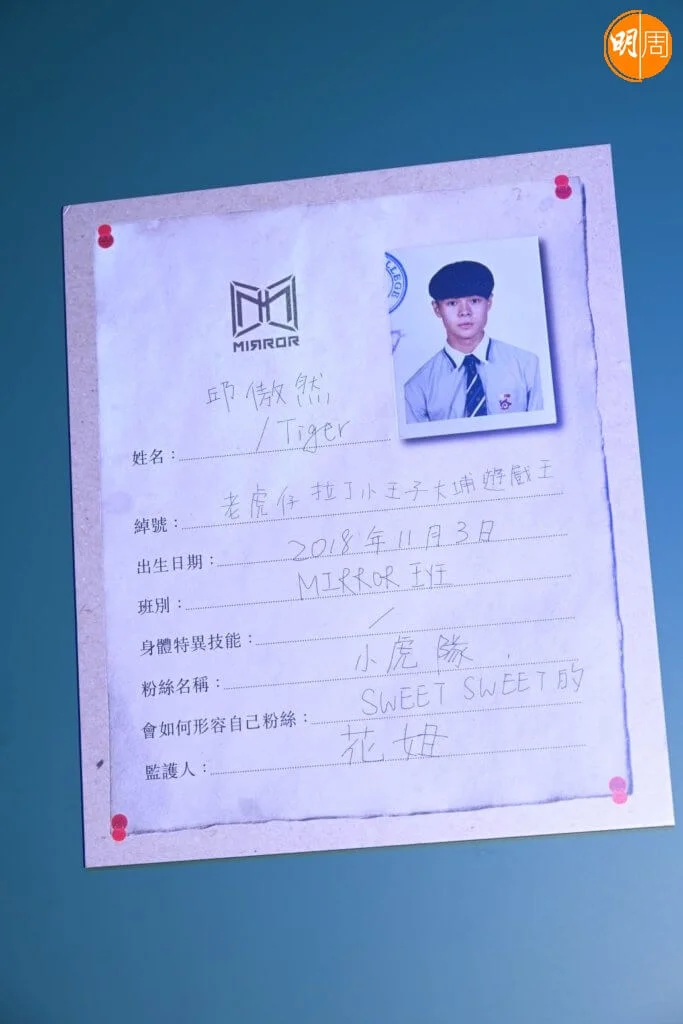 明周
COLLEGE
MIRROR
邱傲然
姓名：/Tiger
綽號：老虎仔 拉丁小王子 大埔遊戲王
出生日期：2018年11月3日
班別：MIRROR 班
身體特異技能：/
粉絲名稱：小虎隊
會如何形容自己粉絲：SWEET SWEET 的
監護人：花姐